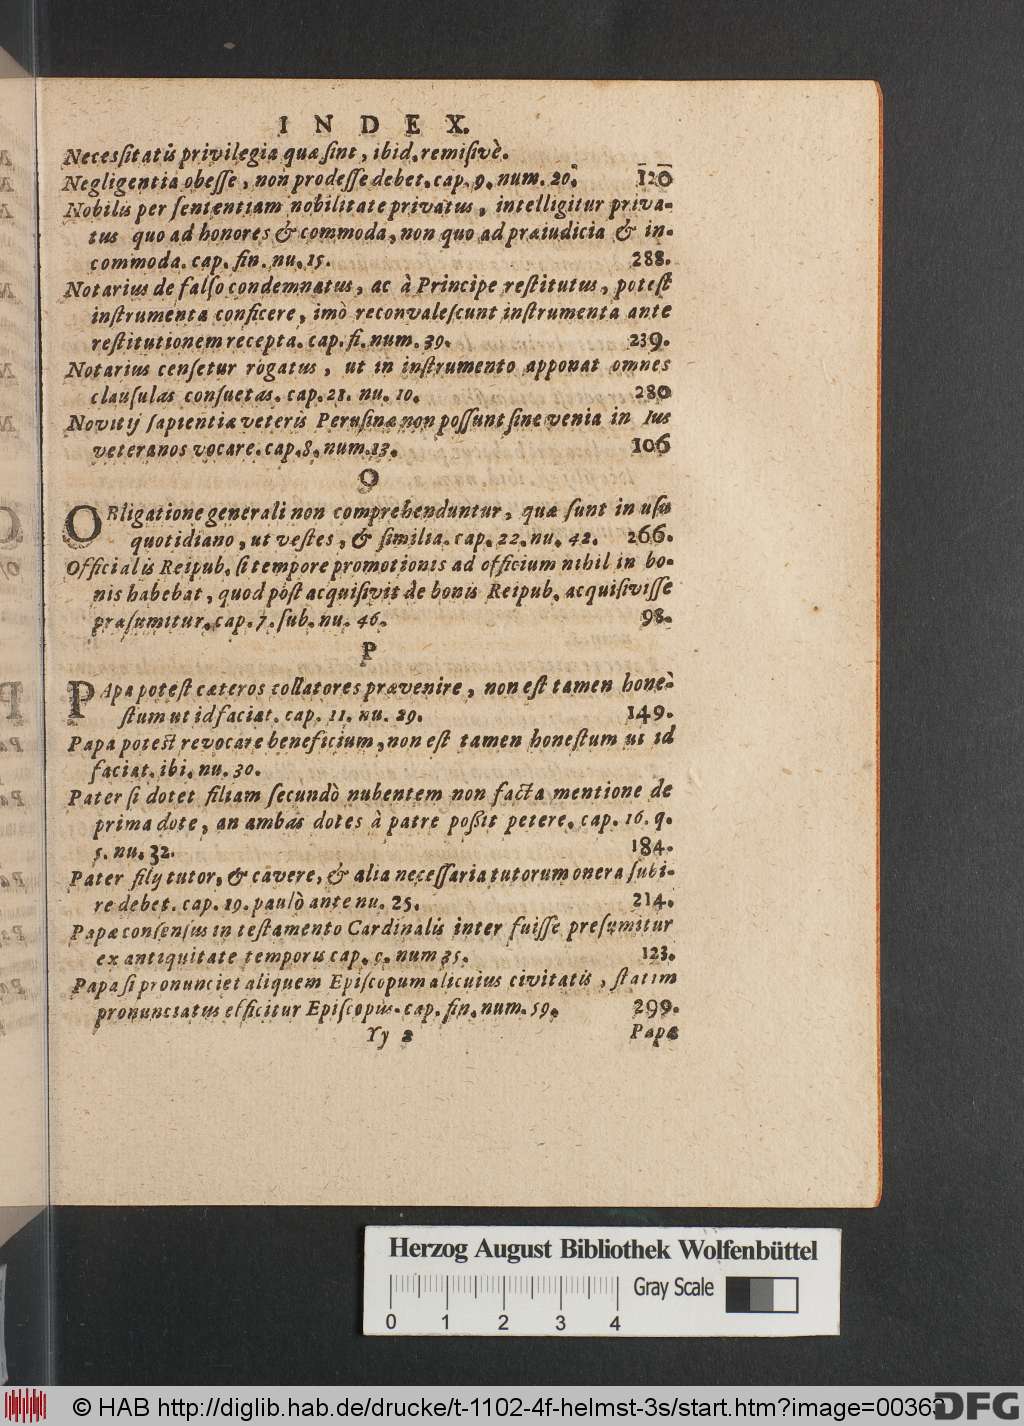 INDEX.
Necessitatis privilegia quæ sint, ibid. remisivè.
Negligentia obesse, non prodesse debet. cap. 9. num. 20. 120
Nobilis per sententiam nobilitate privatus, intelligitur priva-
tus quo ad honores & commoda, non quo ad præiudicia & in-
commoda. cap. fin. nu. 15. 288.
Notarius de falso condemnatus, ac à Principe restitutus, potest
instrumenta conficere, imò reconvalescunt instrumenta ante
restitutionem recepta. cap. fi. num. 39. 239.
Notarius censetur rogatus, ut in instrumento apponat omnes
clausulas consuetas. cap. 21. nu. 10. 280
Novitij sapientiæ veteris Perusinæ non possunt sine venia in Ius
veteranos vocare. cap. 8. num. 13. 106
O
OBligatione generali non comprehenduntur, quæ sunt in usu
quotidiano, ut vestes, & similia. cap. 22. nu. 42. 266.
Officialis Reipub. si tempore promotionis ad officium nihil in bo-
nis habebat, quod pòst acquisivit de bonis Reipub. acquisivisse
præsumitur. cap. 7. sub. nu. 46. 98.
P
PApa potest cæteros collatores prævenire, non est tamen hone-
stum ut id faciat. cap. 11. nu. 29. 149.
Papa potest revocare beneficium, non est tamen honestum ut id
faciat. ibi. nu. 30.
Pater si dotet filiam secundò nubentem non facta mentione de
prima dote, an ambas dotes à patre possit petere. cap. 16. q.
5. nu. 32. 184.
Pater filij tutor, & cavere, & alia necessaria tutorum onera subi-
re debet. cap. 19. paulò ante nu. 25. 214.
Papæ consensus in testamento Cardinalis inter fuisse presumitur
ex antiquitate temporis cap. 9. num 35. 123.
Papa si pronunciet aliquem Episcopum alicuius civitatis, statim
pronunciatus efficitur Episcopus. cap. fin. num. 59. 299.
Yy 2 Papa
Herzog August Bibliothek Wolfenbüttel
Gray Scale
0 1 2 3 4
© HAB http://diglib.hab.de/drucke/t-1102-4f-helmst-3s/start.htm?image=00363
DFG